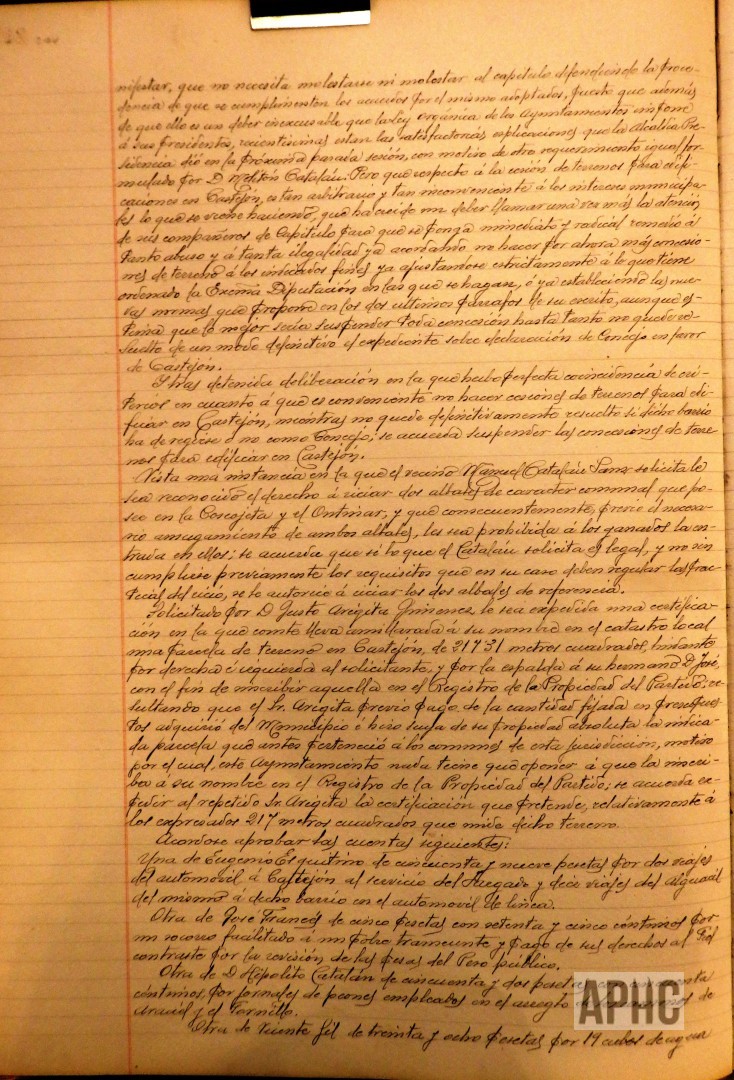 nifestar, que no necesita molestarse ni molestar al capitulo difendiendo la proce-
dencia de que se cumplimenten los acuerdos por el mismo adoptados, puesto que además
de que ello es un deber inexcusable que la Ley orgánica de los Ayuntamientos impone
á sus presidentes, recientisimas estan las satisfactorias esplicaciones que la Alcaldía Pre-
sidencia dió en la próxima pasada sesión, con motivo de otro requerimiento igual for-
mulado por D. Melitón Catalán: Pero que respecto á la cesión de terrenos para edifi-
caciones en Castejón, es tan arbitrario y tan inconveniente á los intereses municipa-
les lo que se viene haciendo, que ha creido un deber llamar una vez más la atención
de sus compañeros de Capitulo para que se ponga inmediato y radical remedio á
tanto abuso y á tanta ilegalidad ya acordando no hacer por ahora más concesio-
nes de terreno á los indicados fines, ya ajustandose estrictamente á lo que tiene
ordenado la Excma Diputación en las que se hagan, ó ya estableciendo las nue-
vas normas que propone en los dos ultimos párrafos de su escrito, aunque es-
tima que lo mejor seria suspender toda concesión hasta tanto no quede re-
suelto de un modo definitivo el expediente sobre declaración de Concejo en favor
de Castejón.
Y tras detenida deliberación en la que hubo perfecta coincidencia de cri-
terios en cuanto á que es conveniente no hacer cesiones de terrenos para edi-
ficar en Castejón, mientras no quede definitivamente resuelto si dicho barrio
ha de regirse ó no como Concejo; se acuerda suspender las concesiones de terre-
nos para edificar en Castejón.
Vista una instancia en la que el vecino Manuel Catalán Sanz solicita le
sea reconocido el derecho á riciar dos albales de caracter comunal que po-
see en la Coscojeta y el Ontinar, y que consecuentemente, previo el necesa-
rio amugamiento de ambos albales, les sea prohibida á los ganados la en-
trada en ellos; se acuerda que si lo que el Catalán solicita es legal, y no sin
cumplirse previamente los requisitos que en su caso deben regular las prac-
ticas del ricio, se le autorice á riciar los dos albales de referencia.
Solicitado por D. Justo Arigita Jimenez le sea expedida una certifica-
ción en la que conste lleva amillarada á su nombre en el catastro local
una parcela de terreno en Castejón, de 217'31 metros cuadrados, lindante
por derecha é izquierda al solicitante, y por la espalda á su hermano D. José,
con el fin de inscribir aquella en el Registro de la Propiedad del Partido; re-
sultando que el Sr. Arigita previo pago de la cantidad fijada en presupues-
tos adquirió del Municipio é hizo suya de su propiedad absoluta la indica-
da parcela que antes perteneció á los comunes de esta jurisdiccion, motivo
por el cual, este Ayuntamiento nada tiene que oponer á que la inscri-
ba á su nombre en el Registro de la Propiedad del Partido; se acuerda ex-
pedir al repetido Sr. Arigita la certificación que pretende, relativamente á
los expresados 217 metros cuadrados que mide dicho terreno.
Acordose aprobar las cuentas siguientes:
Una de Eugenio Esquitino de cincuenta y nueve pesetas por dos viajes
del automovil á Castejón al servicio del Juzgado y viajes del Alguacil
del mismo á dicho barrio en el automovil de linea.
Otra de José Francés de cinco pesetas con setenta y cinco céntimos por
un socorro facilitado á un pobre transeunte y pago de sus derechos al Fiel
contraste por la revisión de las pesas del Peso público.
Otra de D. Hipólito Catalán de cincuenta y dos pesetas
céntimos, por jornales de peones empleados en el arreglo de
y el Tornillo.
Otra de Vicente Gil de treinta y ocho pesetas por 19 cubos de agua
APHC